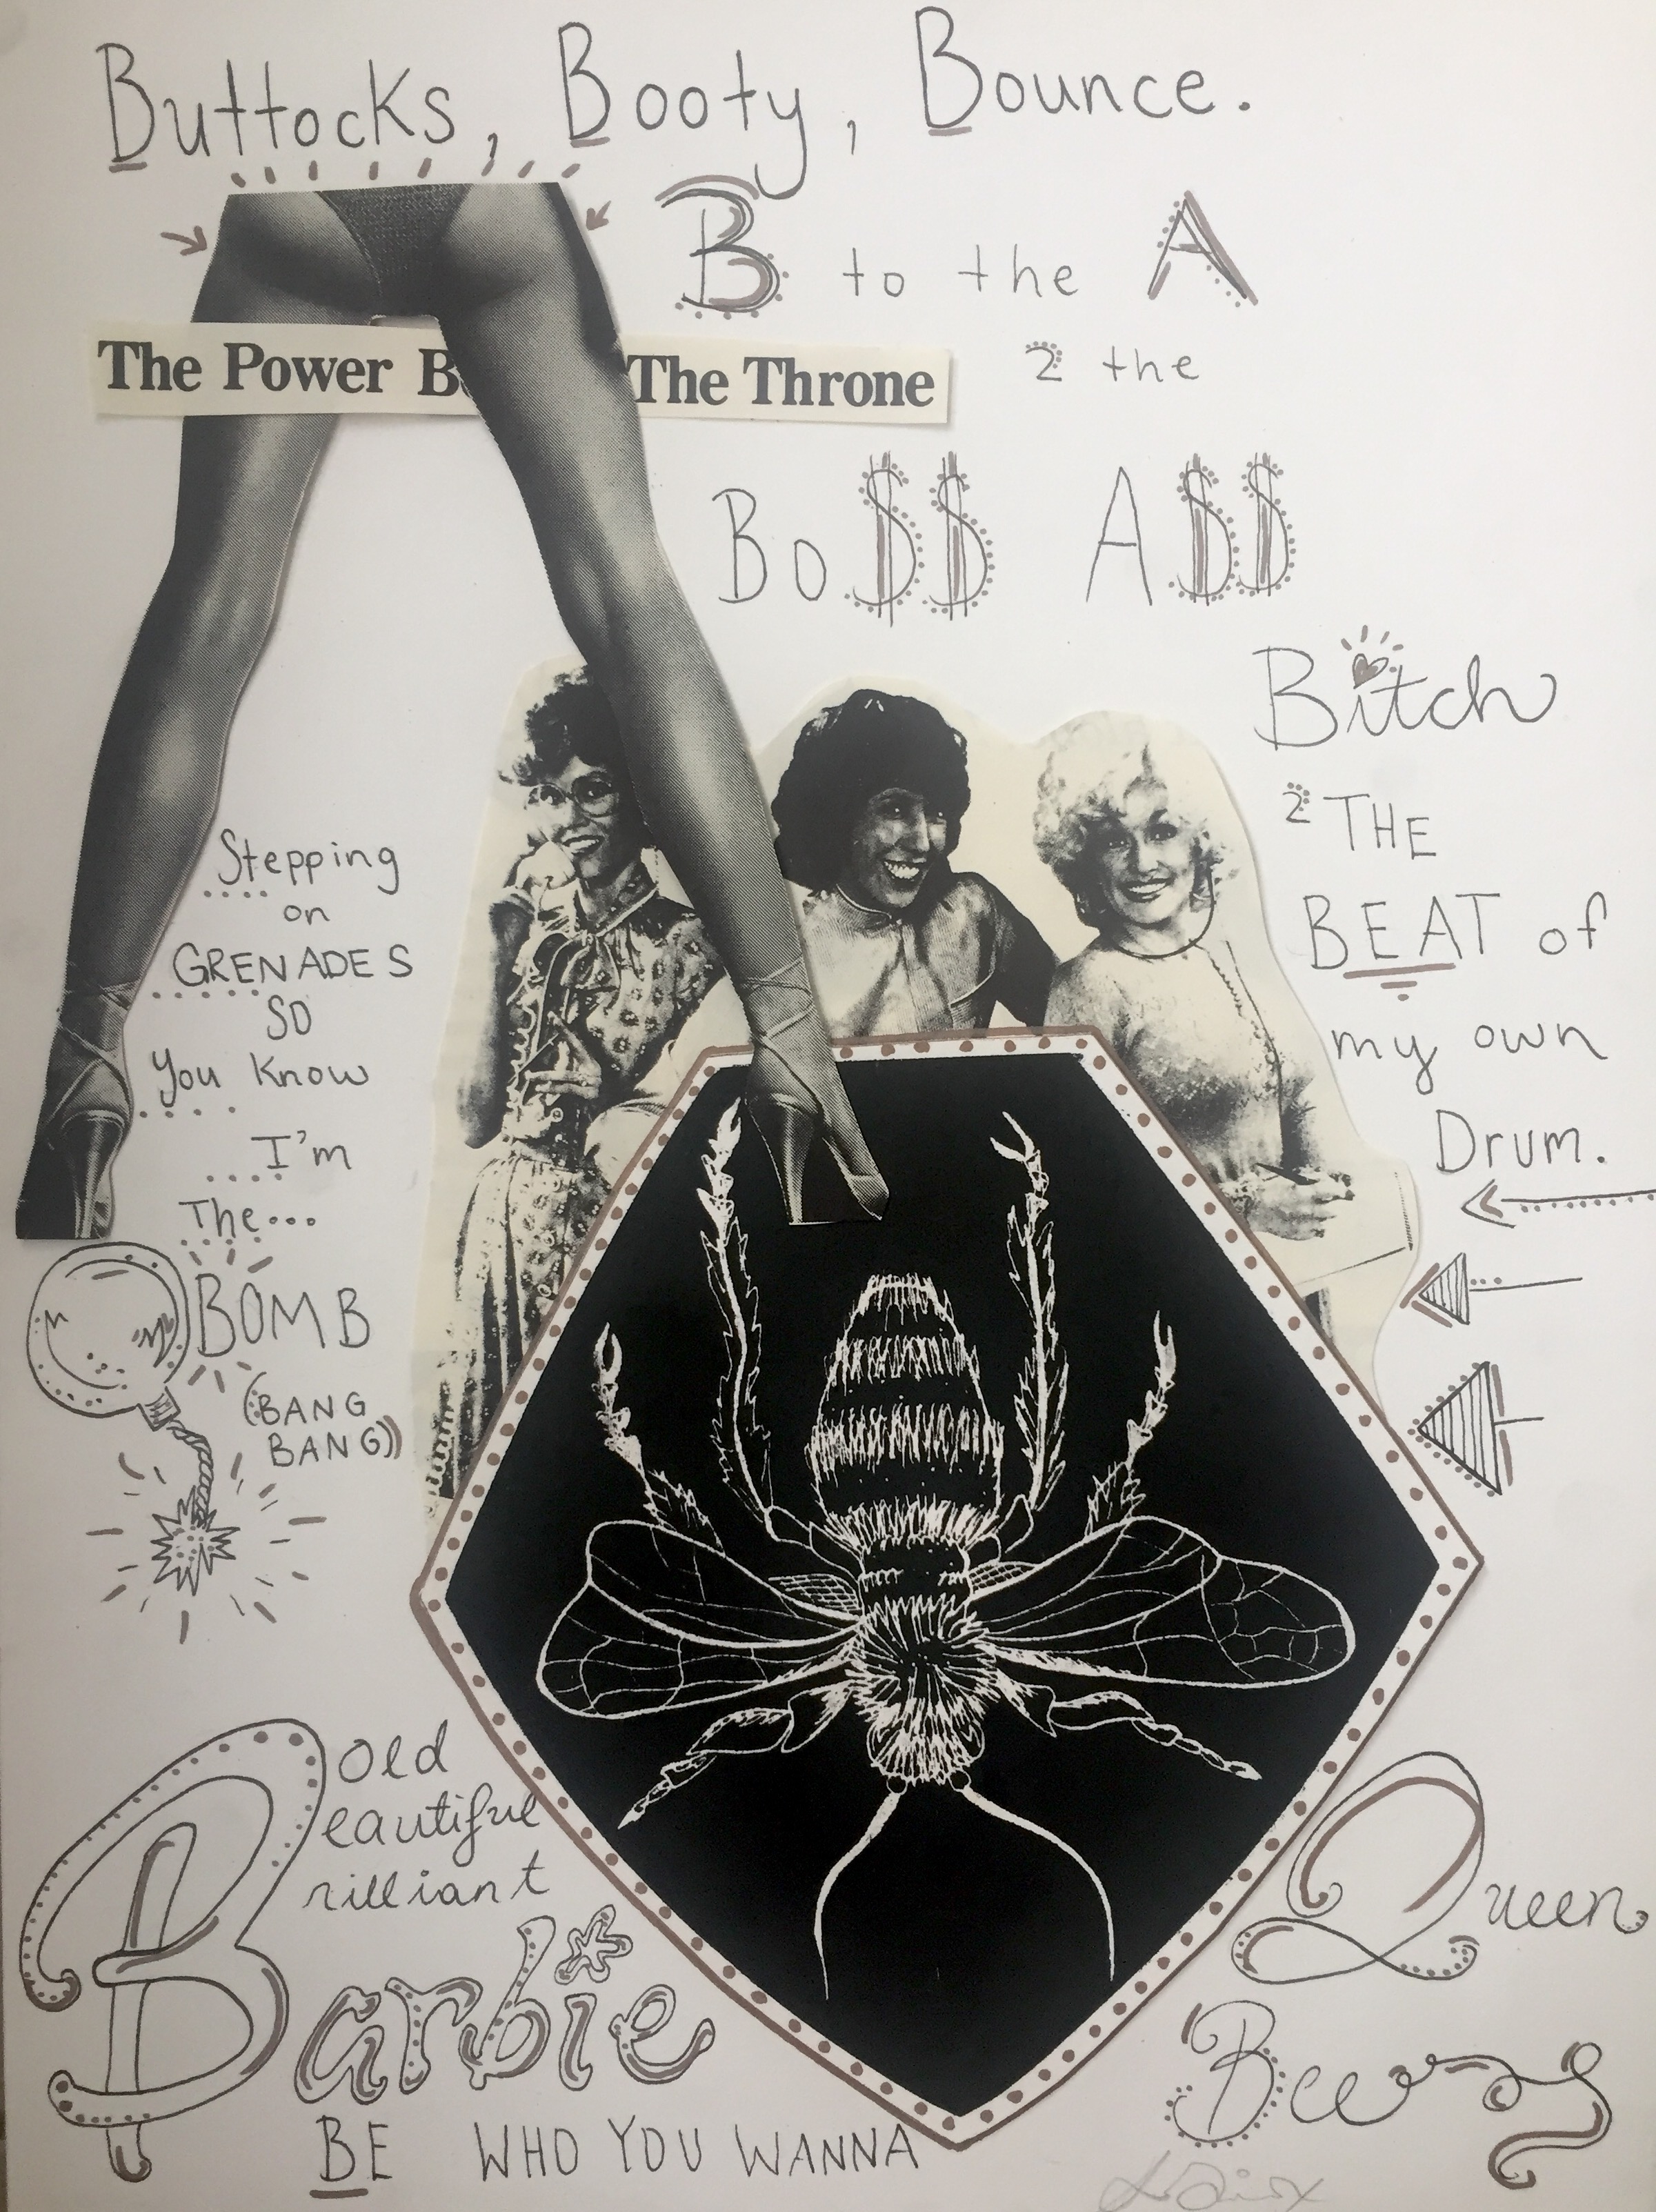 Buttocks, Booty, Bounce.
B to the A
The Power B The Throne
2 the
Bo$$ A$$
Bitch
2 THE
BEAT of
my own
Drum.
Stepping
on
GRENADES
SO
you know
I'm
The...
BOMB
(BANG
BANG))
Bold
eautiful
rilliant
Barbie
BE WHO YOU WANNA
Queen
Bee